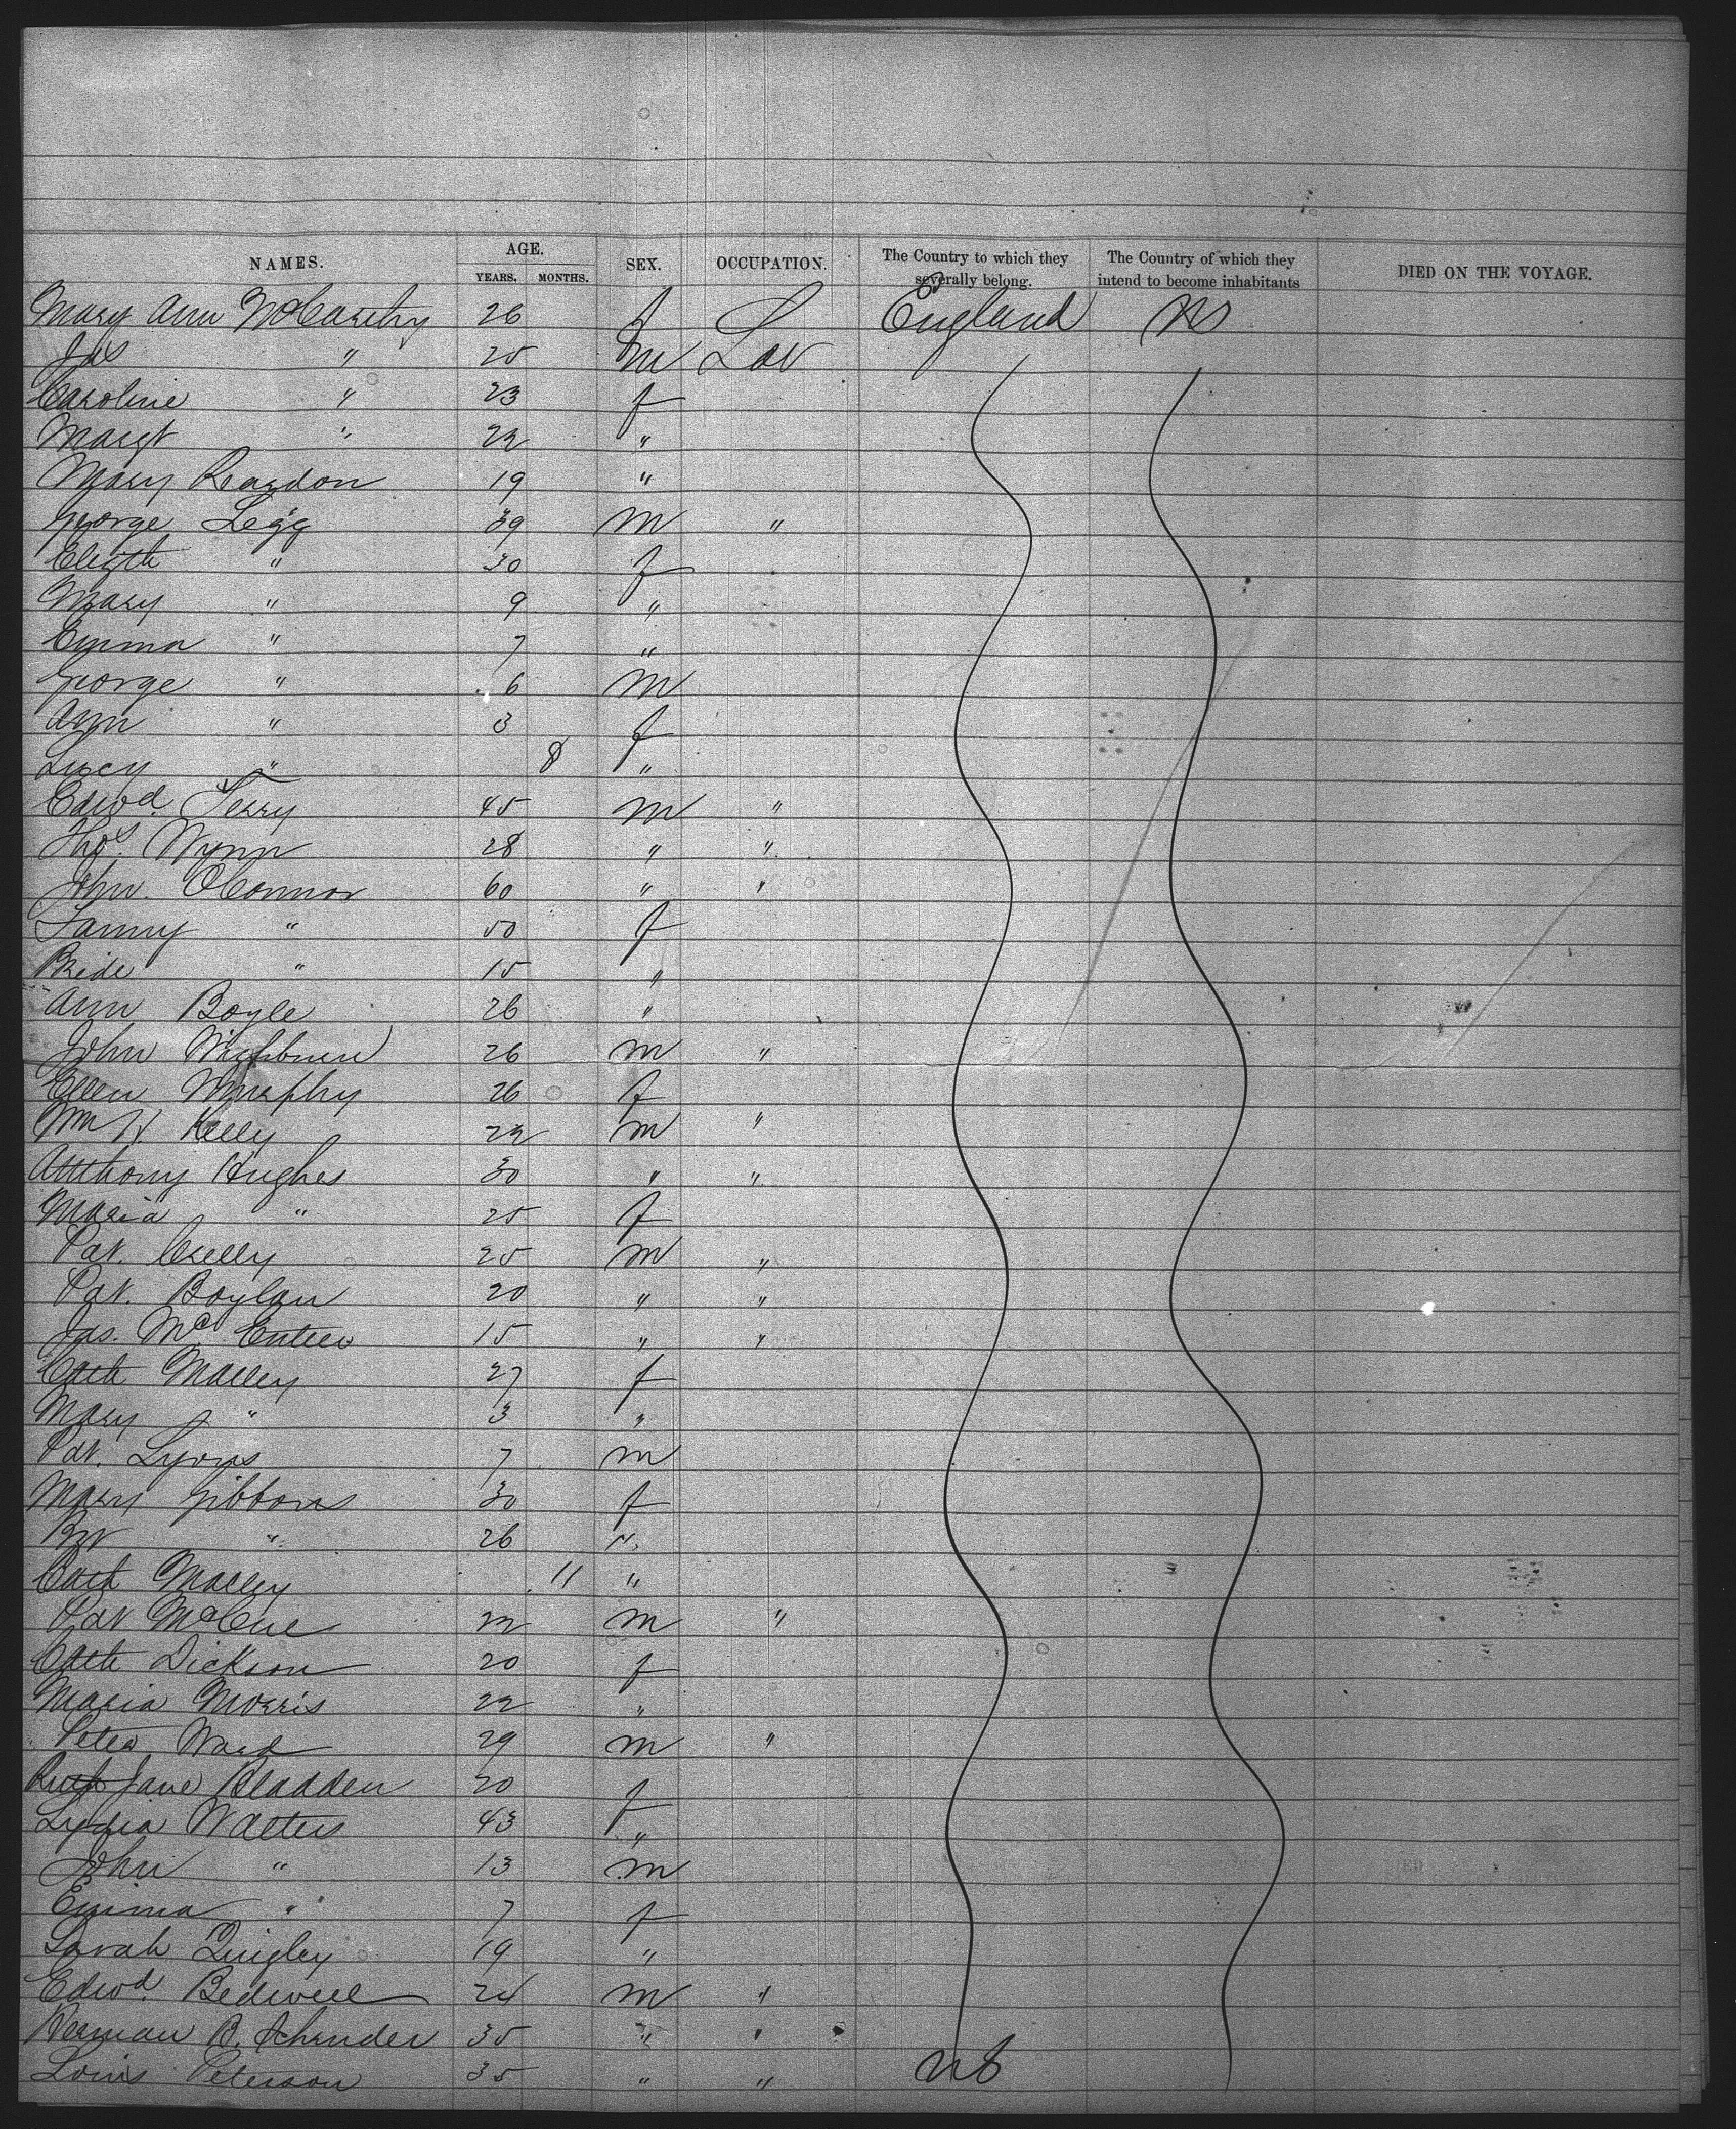 NAMES. AGE. YEARS. MONTHS. SEX. OCCUPATION. The Country to which they severally belong. The Country of which they intend to become inhabitants DIED ON THE VOYAGE.
Mary Ann McCarthy 26 f England US
Jas " 25 m Lab
Caroline " 23 f
Margt " 22 "
Mary Reardon 19 "
George Legg 39 m "
Elizth " 30 f
Mary " 9 "
Emma " 7 "
George " 6 m
Ann " 3 f
Lucy " 8 "
Edwd. Terry 45 m "
Thos. Wynn 28 " "
John. OConnor 60 " "
Fanny " 50 f
Bride " 15 "
Ann Boyle 26 "
John 26 m "
Ellen Murphy 26 f
Wm H. Kelly 22 m "
Anthony Hughes 30 " "
Maria " 25 f
Pat. 25 m "
Pat. Boylan 20 " "
Jas. Mc Entee 15 " "
Cath Malley 27 f
Mary " 3 "
Pat. Lyons 7 m
Mary Gibbons 30 f
Bt " 26 "
Cath Malley 11 "
Pat McCue 22 m "
Cath Dickson 20 f
Maria Morris 22 "
Peter Ward 29 m "
Ruth Jane Bladden 20 f
Lydia Walters 43 "
John " 13 m
Emma " 7 f
Sarah Quigley 19 "
Edwd. Bedwell 24 m "
Herman B. Schruder 35 " "
Louis Peterson 35 " " US